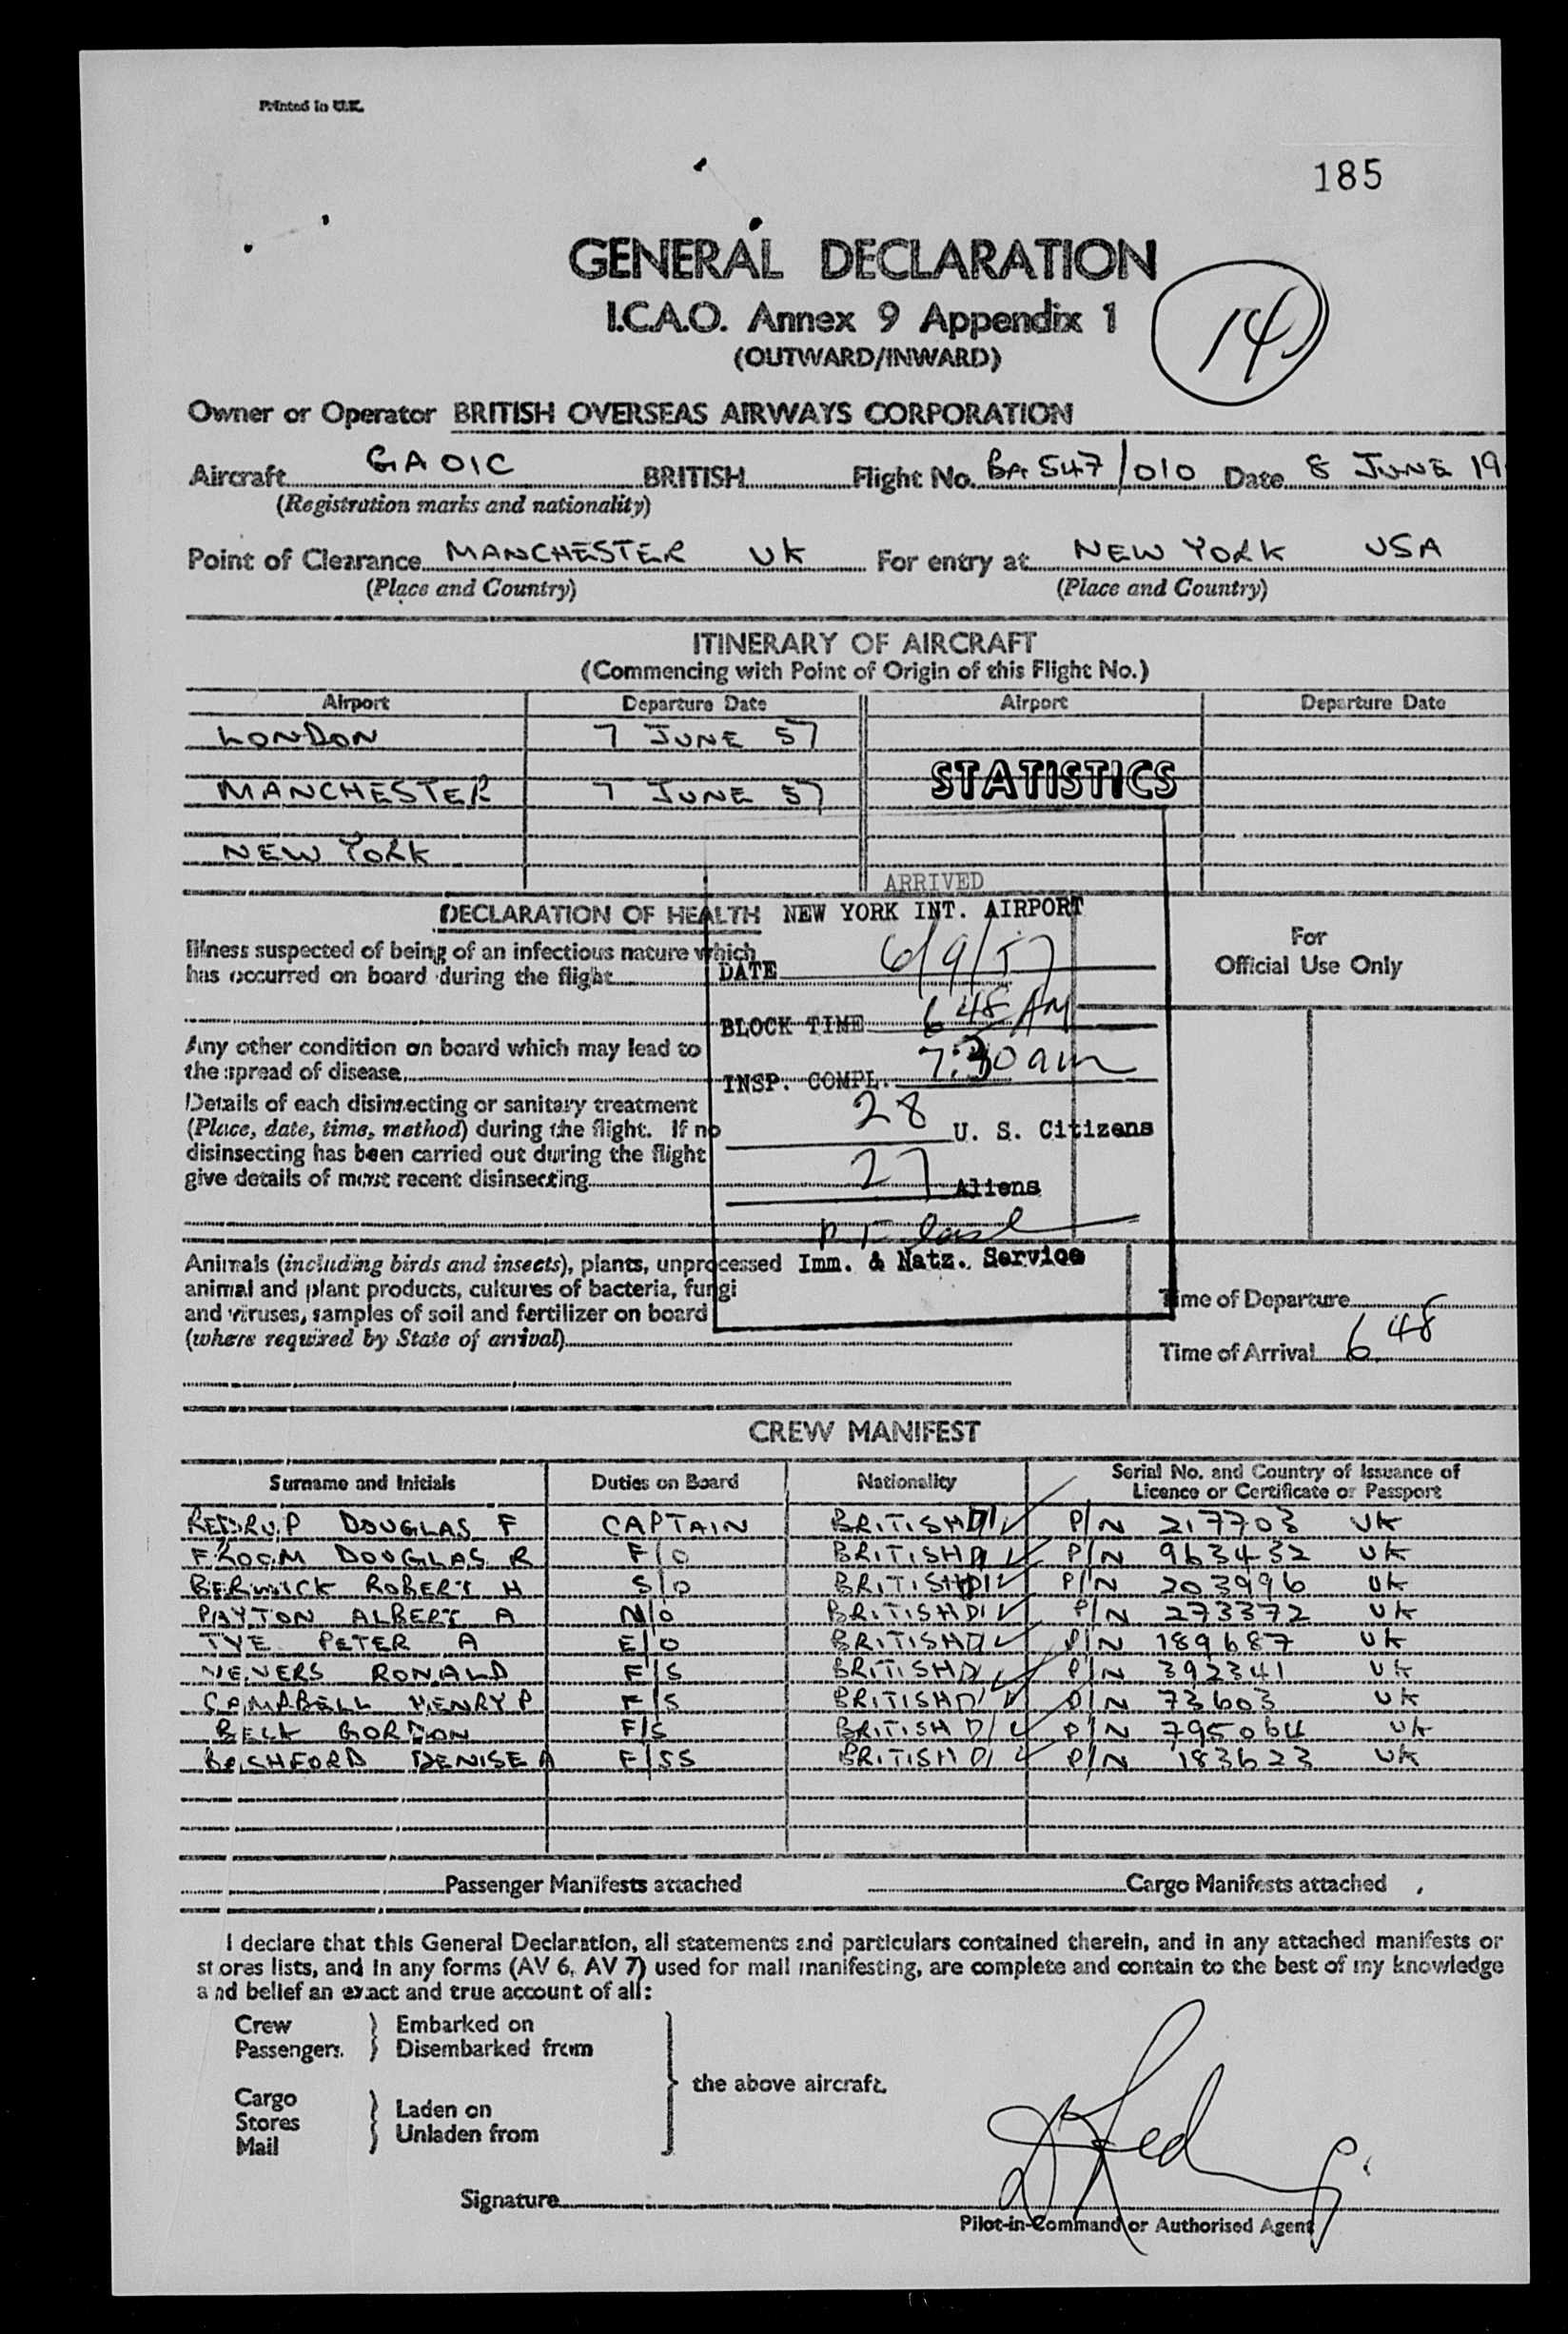 Printed in U.K.
185
GENERAL DECLARATION
I.C.A.O. Annex 9 Appendix 1
(OUTWARD/INWARD)
14
Owner or Operator BRITISH OVERSEAS AIRWAYS CORPORATION
Aircraft GAOIC BRITISH Flight No. BA 547/010 Date 8 JUNE 19
(Registration marks and nationality)
Point of Clearance MANCHESTER UK For entry at NEW YORK USA
(Place and Country) (Place and Country)
ITINERARY OF AIRCRAFT
(Commencing with Point of Origin of this Flight No.)
Airport Departure Date Airport Departure Date
LONDON 7 JUNE 57
MANCHESTER 7 JUNE 57 STATISTICS
NEW YORK
ARRIVED
DECLARATION OF HEALTH NEW YORK INT. AIRPORT
Illness suspected of being of an infectious nature which
has occurred on board during the flight
DATE 6/9/57
For
Official Use Only
BLOCK TIME 6 48 AM
Any other condition on board which may lead to
the spread of disease
INSP. COMPL. 7:30 am
Details of each disinsecting or sanitary treatment
(Place, date, time, method) during the flight. If no
28 U. S. Citizens
disinsecting has been carried out during the flight
give details of most recent disinsecting
27 Aliens
Animals (including birds and insects), plants, unprocessed
Imm. & Natz. Service
animal and plant products, cultures of bacteria, fungi
and viruses, samples of soil and fertilizer on board
(where required by State of arrival)
Time of Departure
Time of Arrival 6 48
CREW MANIFEST
Surname and Initials Duties on Board Nationality Serial No. and Country of Issuance of
Licence or Certificate or Passport
REDRUP DOUGLAS F CAPTAIN BRITISH D1 P/N 217703 UK
FROOM DOUGLAS R F/O BRITISH D1 P/N 963432 UK
BERWICK ROBERT H S/O BRITISH D1 P/N 203996 UK
PAYTON ALBERT A N/O BRITISH D1 P/N 273372 UK
TYE PETER A E/O BRITISH D1 P/N 189687 UK
VENERS RONALD F/S BRITISH D1 P/N 392341 UK
CAMPBELL HENRY P F/S BRITISH D1 P/N 73603 UK
BELK GORDON F/S BRITISH D1 P/N 795064 UK
BASHFORD DENISE A F/SS BRITISH D1 P/N 183623 UK
Passenger Manifests attached Cargo Manifests attached
I declare that this General Declaration, all statements and particulars contained therein, and in any attached manifests or
stores lists, and in any forms (AV 6, AV 7) used for mail manifesting, are complete and contain to the best of my knowledge
and belief an exact and true account of all:
Crew Embarked on
Passengers Disembarked from
the above aircraft.
Cargo
Stores
Mail
Laden on
Unladen from
Signature
Pilot-in-Command or Authorised Agent